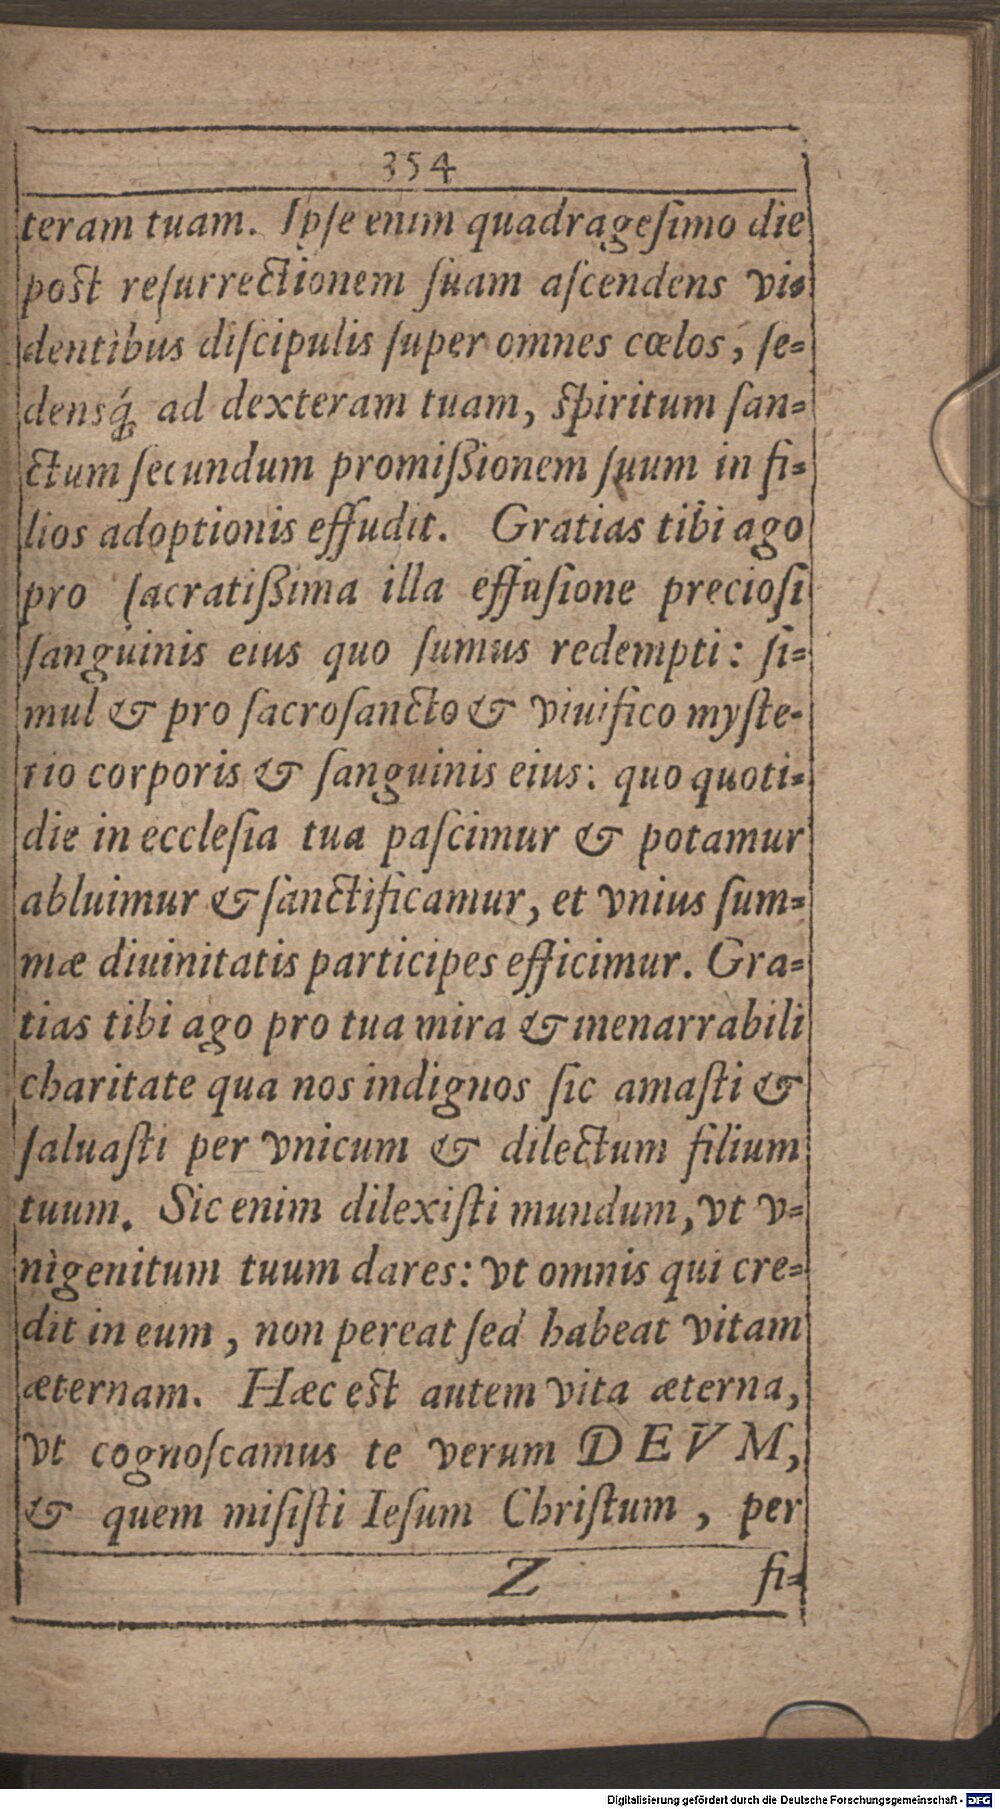 354
teram tuam. Ipſe enim quadrageſimo die
poſt reſurrectionem ſuam aſcendens vi-
dentibus diſcipulis ſuper omnes cœlos, ſe-
densq́ꝫ ad dexteram tuam, ſpiritum ſan-
ctum ſecundum promiſsionem ſuum in fi-
lios adoptionis effudit. Gratias tibi ago
pro ſacratiſsima illa effuſione precioſi
ſanguinis eius quo ſumus redempti: ſi-
mul & pro ſacroſancto & viuifico myſte-
rio corporis & ſanguinis eius: quo quoti-
die in eccleſia tua paſcimur & potamur
abluimur & ſanctificamur, et vnius ſum-
mæ diuinitatis participes efficimur. Gra-
tias tibi ago pro tua mira & inenarrabili
charitate qua nos indignos ſic amaſti &
ſaluaſti per vnicum & dilectum filium
tuum. Sic enim dilexiſti mundum, vt v-
nigenitum tuum dares: vt omnis qui cre-
dit in eum, non pereat ſed habeat vitam
æternam. Hæc eſt autem vita æterna,
vt cognoſcamus te verum DEVM,
& quem miſiſti Ieſum Chriſtum, per
Z fi-
Digitalisierung gefördert durch die Deutsche Forschungsgemeinschaft - DFG